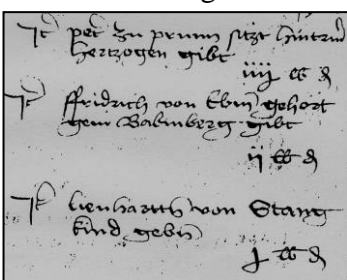 It pet zu prunn sitzt hintrm
hertzogen gibt
iiij lb d
It ffridrich von Ebin gehort
gein Babinberg gibt
ij lb d
It lienhartt von Stang
kind gebn
j lb d